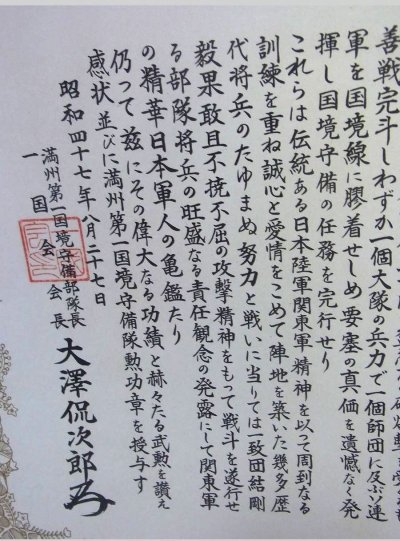 善戦完斗しわずか一個大隊の兵力で一個師団に及ぶソ連
軍を国境線に膠着せしめ要塞の真価を遺憾なく発
揮し国境守備の任務を完行せり
これらは伝統ある日本陸軍関東軍精神を以って周到なる
訓練を重ね誠心と愛情をこめて陣地を築いた幾多歴
代将兵のたゆまぬ努力と戦いに当りては一致団結剛
毅果敢且不撓不屈の攻撃精神をもって戦斗を遂行せ
る部隊将兵の旺盛なる責任観念の発露にして関東軍
の精華日本軍人の亀鑑たり
仍って茲にその偉大なる功績と赫々たる武勲を讃え
感状並びに満州第一国境守備隊勲功章を授与す
昭和四十七年八月二十七日
満州第一国境守備部隊長
一国会会長
大澤侃次郎